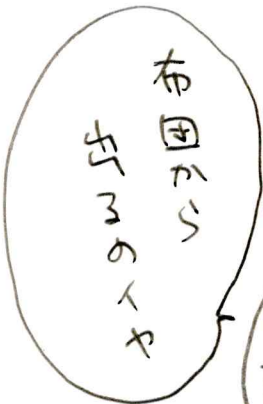 布団から
出るのイヤ